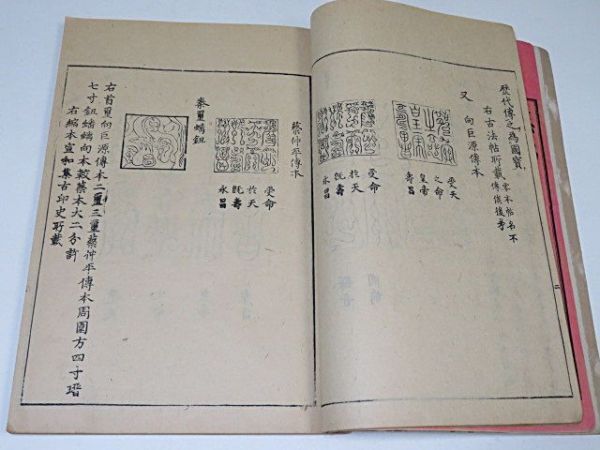 歷代傳之為國寶
右古法帖所載 本帖名不
傳 後考
又 向巨源傳本
受天
之命
皇帝
壽昌
受命
於天
既壽
永昌
蔡仲平傳本
受命
於天
既壽
永昌
秦璽螭鈕
右首璽向巨源傳本二璽三璽蔡仲平傳本周圍方四寸
七寸鈕 向本較蔡本大二分許
右縮本宣和集古印史所載
二